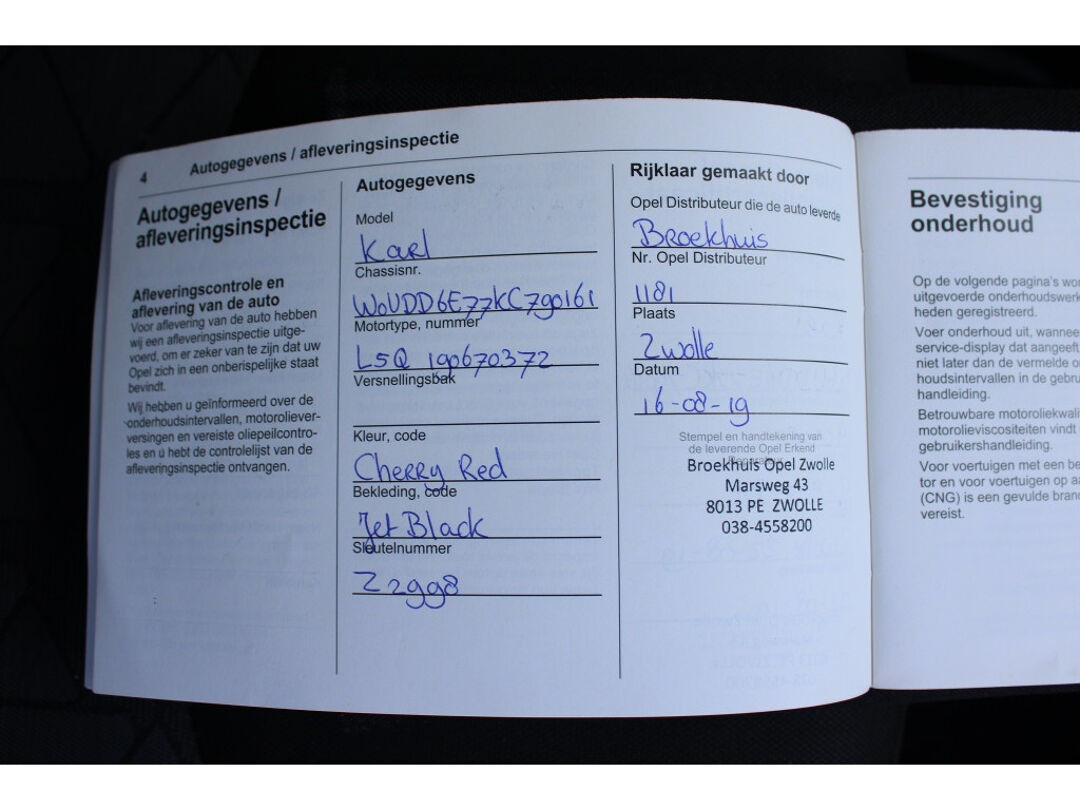 4 Autogegevens / afleveringsinspectie
Autogegevens /
afleveringsinspectie
Afleveringscontrole en
aflevering van de auto
Voor aflevering van de auto hebben
wij een afleveringsinspectie uitge-
voerd, om er zeker van te zijn dat uw
Opel zich in een onberispelijke staat
bevindt.
Wij hebben u geïnformeerd over de
onderhoudsintervallen, motoroliever-
versingen en vereiste oliepeilcontro-
les en u hebt de controlelijst van de
afleveringsinspectie ontvangen.
Autogegevens
Model
Karl
Chassisnr.
W0VDD6E77KC790161
Motortype, nummer
L5Q 190670372
Versnellingsbak
Kleur, code
Cherry Red
Bekleding, code
Jet Black
Sleutelnummer
Z2998
Rijklaar gemaakt door
Opel Distributeur die de auto leverde
Broekhuis
Nr. Opel Distributeur
1181
Plaats
Zwolle
Datum
16-08-19
Stempel en handtekening van
de leverende Opel Erkend
Broekhuis Opel Zwolle
Marsweg 43
8013 PE ZWOLLE
038-4558200
Bevestiging
onderhoud
Op de volgende pagina's
uitgevoerde
heden geregistreerd.
Voer onderhoud uit,
service-display dat aangeeft
niet later dan de vermelde
houdsintervallen in de
handleiding.
Betrouwbare
motorolieviscositeiten vindt
gebruikershandleiding.
Voor voertuigen met een
tor en voor voertuigen op
(CNG) is een gevulde
vereist.